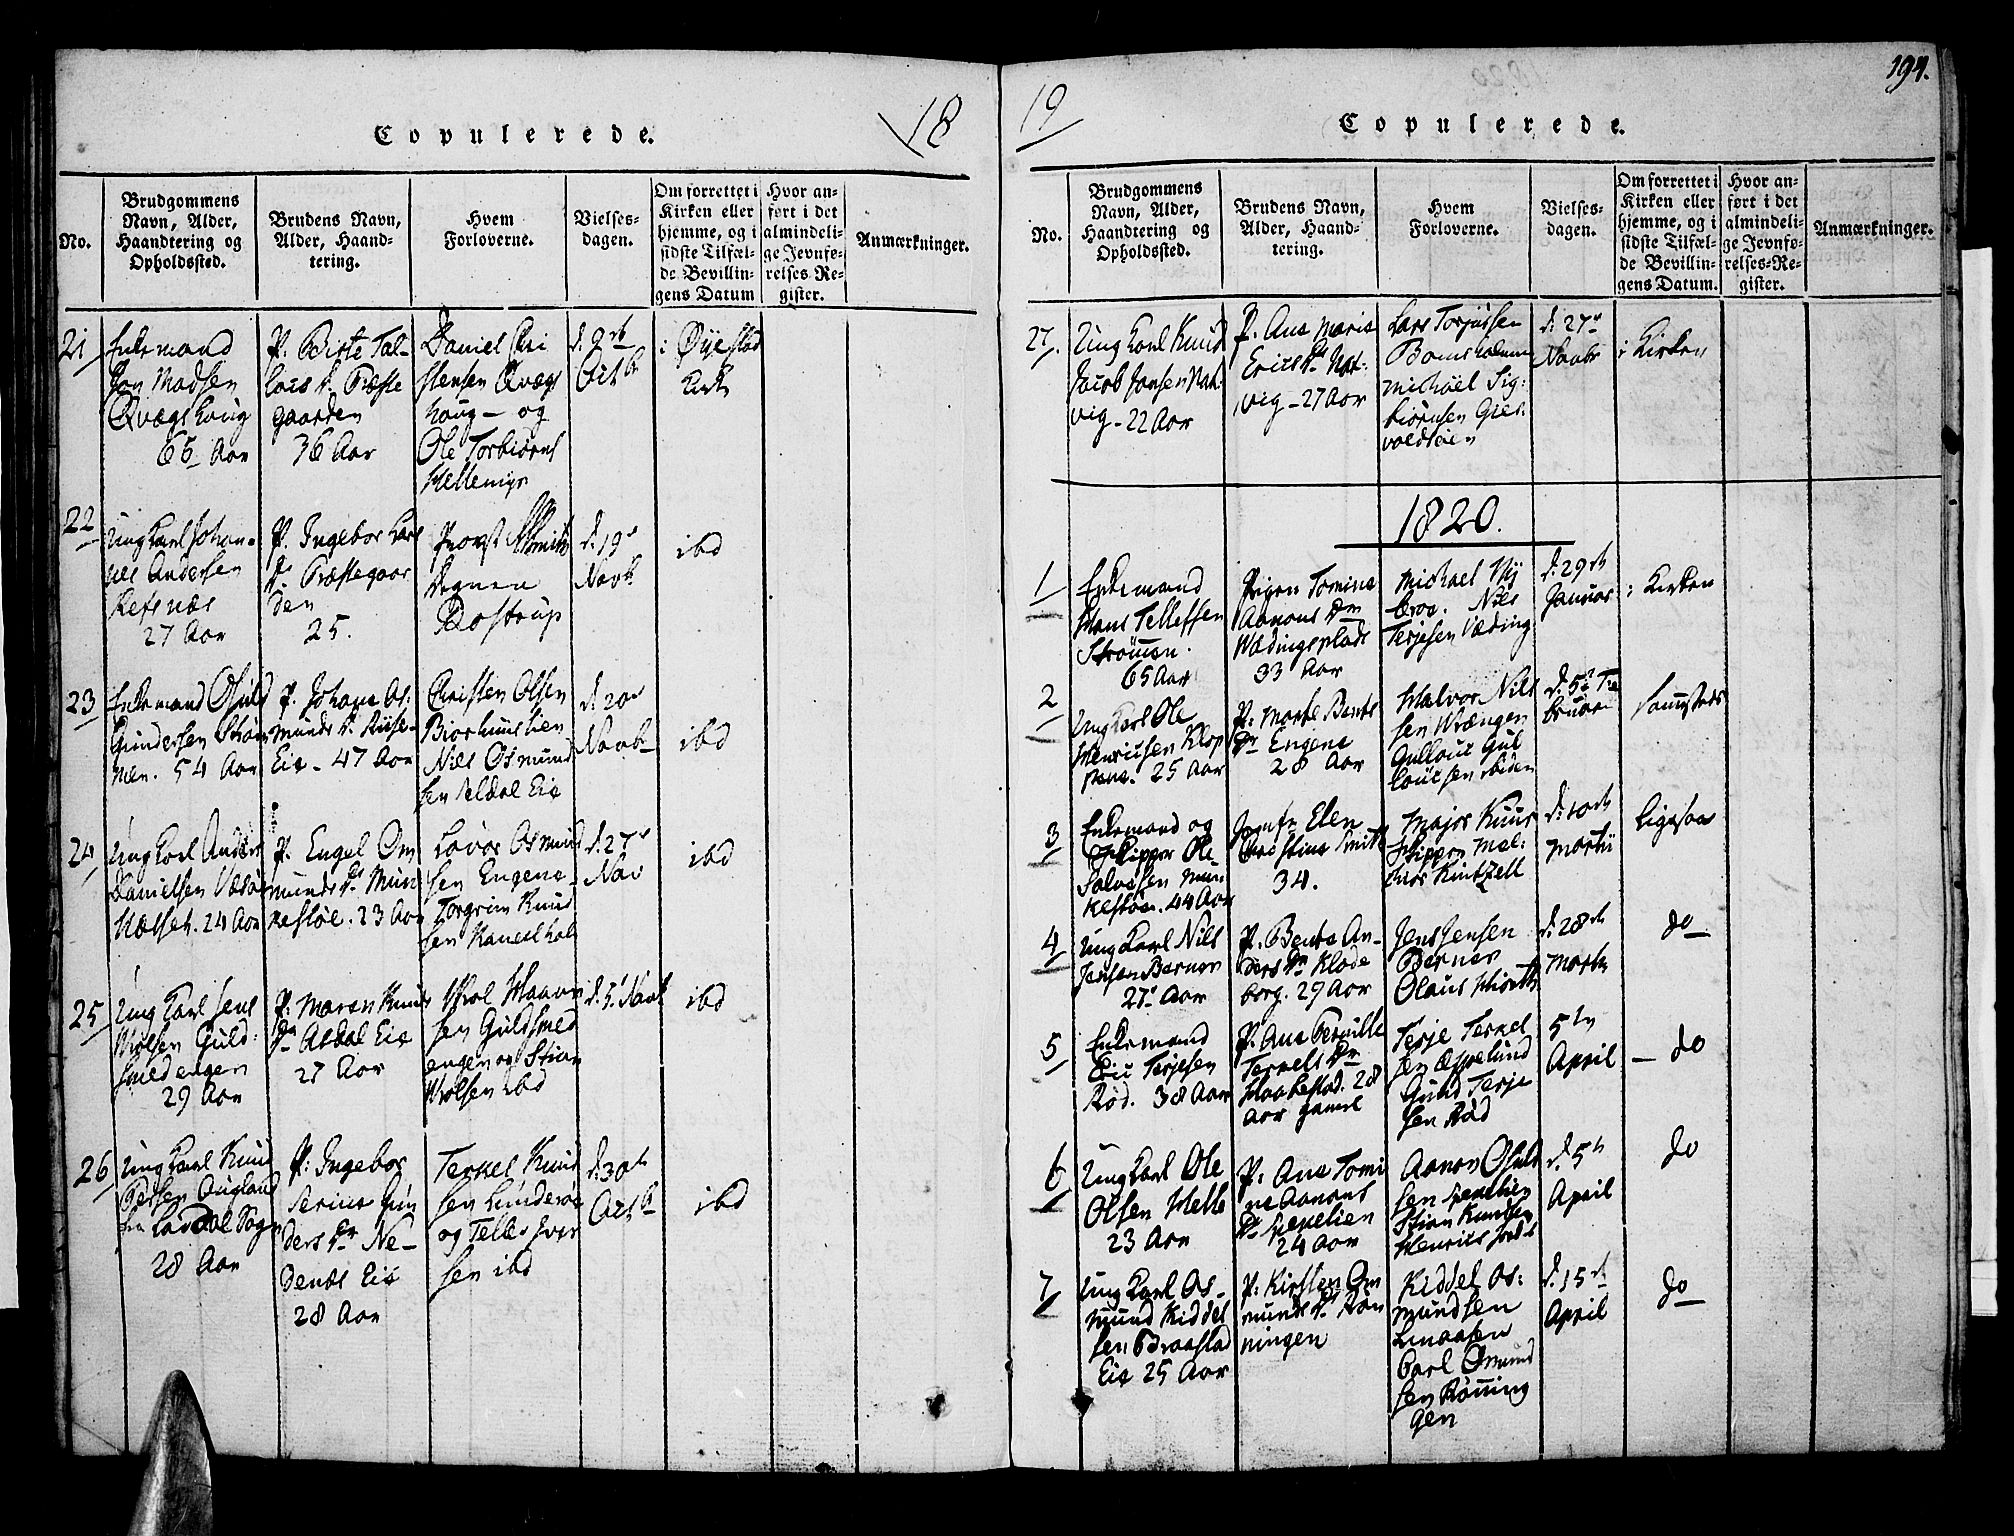 18
Copulerede.
No.
Brudgommens
Navn, Alder,
Haandtering og
Opholdssted.
Brudens Navn,
Alder, Haand-
tering.
Hvem
Forloverne.
Vielses-
dagen.
Om forrettet i
Kirken eller
hjemme, og i
sidste Tilfæl-
de Bevillin-
gens Datum
Hvor an-
ført i det
almindeli-
ge Jevnfø-
relses-Re-
gister.
Anmærkninger.
21
Enkemand
Jon Madsen
Qvægshoug
65 Aar
P. Birte Tal-
Præste
gaarden
36 Aar
Daniel Chri
stensen Qvægs
houg - og
Ole Torbiørns
Hellemyr
Octb
i Øyestad
Kirk
22
Ung Karl Johan-
nes Andersen
Refsnæs
27 Aar
P. Ingebor Lars
D. Præstegaar
den
25.
Provst Smith
Degnen
Rostrup
d. 19
Novb
ibd
23
Enkemand Osuld
Gundersen Strøm
men. 54 Aar
P. Johane Os:
munds D.
Eie - 47 Aar
Christen Olsen
Niels Osmund
sen Eie
d. 20
Novb
ibd
24
Ung Karl Anders
Danielsen
24 Aar
P. Engel Om
munds D. Mun
kestøe. 23 Aar
Osmund
sen Engene
Torgrim Knud
sen
d. 27
Nov
ibd
25
Ung Karl Jens
Guld:
smedengen
29 Aar
P. Maren Knuds
D. Asdal Eie
27 Aar
sen Guldsmed
engen og Stian
ibd
d. 5 Novb
ibd
26
Ung Karl Knud
Persen Augland
Sogn
28 Aar
P. Ingebor
Gun
ders D. Ne-
denæs Eie
28 Aar
Terkel Knud
sen
og
sen ibd
d. 30
Octb
ibd
194.
19
Copulerede.
No.
Brudgommens
Navn, Alder,
Haandtering og
Opholdssted.
Brudens Navn,
Alder, Haand-
tering.
Hvem
Forloverne.
Vielses-
dagen.
Om forrettet i
Kirken eller
hjemme, og i
sidste Tilfæl-
de Bevillin-
gens Datum.
Hvor an-
ført i det
almindeli-
ge Jevnfø-
relses-Re-
gister.
Anmærkninger.
27.
Ung Karl Knud
Jacob Jansen Nat
vig - 22 Aar
P. Ane Marie
Erics D. Nat-
vig - 27 Aar
Lars Torjussen
Bomsholmen
Michael Sig:
biørnsen Gies
voldsøien
d: 27
Novbr
i Kirken
1820.
1
Enkemand
Hans Tellefsen
Strømen.
65 Aar
Pigen Tomine
Aanons Dr
Wædingsplads
33 Aar
Michael Ny
broe. Nils
Terjesen Væding
d: 29
Januar
i Kirken
2
Ung Karl Ole
Henricsen Klop
25 Aar
P: Marte Bents
Dr Engene
28 Aar
Halvor Nils
sen Wrængen
Gullow Gul
d. 5 Fe
bruari
Sammesteds
3
Enkemand og
Skipper Ole
Salvesen Mun
kestøe. 44 Aar
Jomfr Elen
Christine Smith
34.
Major Kuur
Skipper Mel:
d. 10
Martii
ligesaa
4
Ung Karl Nils
Jensen Berner
27 Aar
P. Bente An-
ders Dr Klode
borg. 29 Aar
Jens Jensen
Berner
Olaus
d. 28
Martii
do
5
Enkemand
Eric Terjesen
Rød. 38 Aar
P. Ane Pernille
Terkels Dr
28
Aar gamel
Terje Terkel
sen Espelund
Gund Terje
sen Rød
5
April
- do
6
Ung Karl Ole
Olsen Helle
23 Aar
P: Ane Tomi
ne Aanons
D.
24 Aar
Aanon Osuld
sen
Stian Knudsen
d. 5
April
do
7
Ung Karl Os-
mund Kiddel
sen Braastad
Eie 25 Aar
P: Kirsten Om
munds D. Røn
ningen
Kiddel Os:
mundsen
Linaasen
Carl Omund
sen Rønning
gen
d. 15
April
do